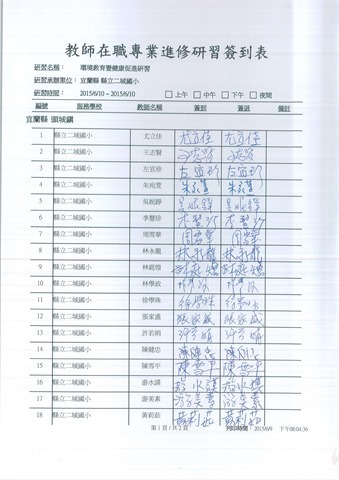 教師在職專業進修研習簽到表
研習名稱： 環境教育暨健康促進研習
研習承辦單位： 宜蘭縣 縣立二城國小
研習時間： 2015/6/10 ~ 2015/6/10 □上午 □中午 □下午 □夜間
編號 服務學校 教師名稱 簽到 簽退 備註
宜蘭縣 頭城鎮
1 縣立二城國小 尤立佳 尤立佳 尤立佳
2 縣立二城國小 王志賢
3 縣立二城國小 左宜珍 左宜珍 左宜珍
4 縣立二城國小 朱宛萱 朱宛萱 朱宛萱
5 縣立二城國小
6 縣立二城國小 李慧珍
7 縣立二城國小 周雪華 周雪華 周雪華
8 縣立二城國小 林永龍 林永龍 林永龍
9 縣立二城國小
10 縣立二城國小 林學政
11 縣立二城國小 徐學珠 徐學珠
12 縣立二城國小 張家盛 張家盛 張家盛
13 縣立二城國小 許若娟
14 縣立二城國小 陳健忠
15 縣立二城國小 陳雪平 陳雪平 陳雪平
16 縣立二城國小 游水讓
17 縣立二城國小 游美素 游美素 游美素
18 縣立二城國小 黃莉茹 黃莉茹 黃莉茹
第 1 頁 / 共 2 頁 列印時間：2015/6/9 下午08:04:36